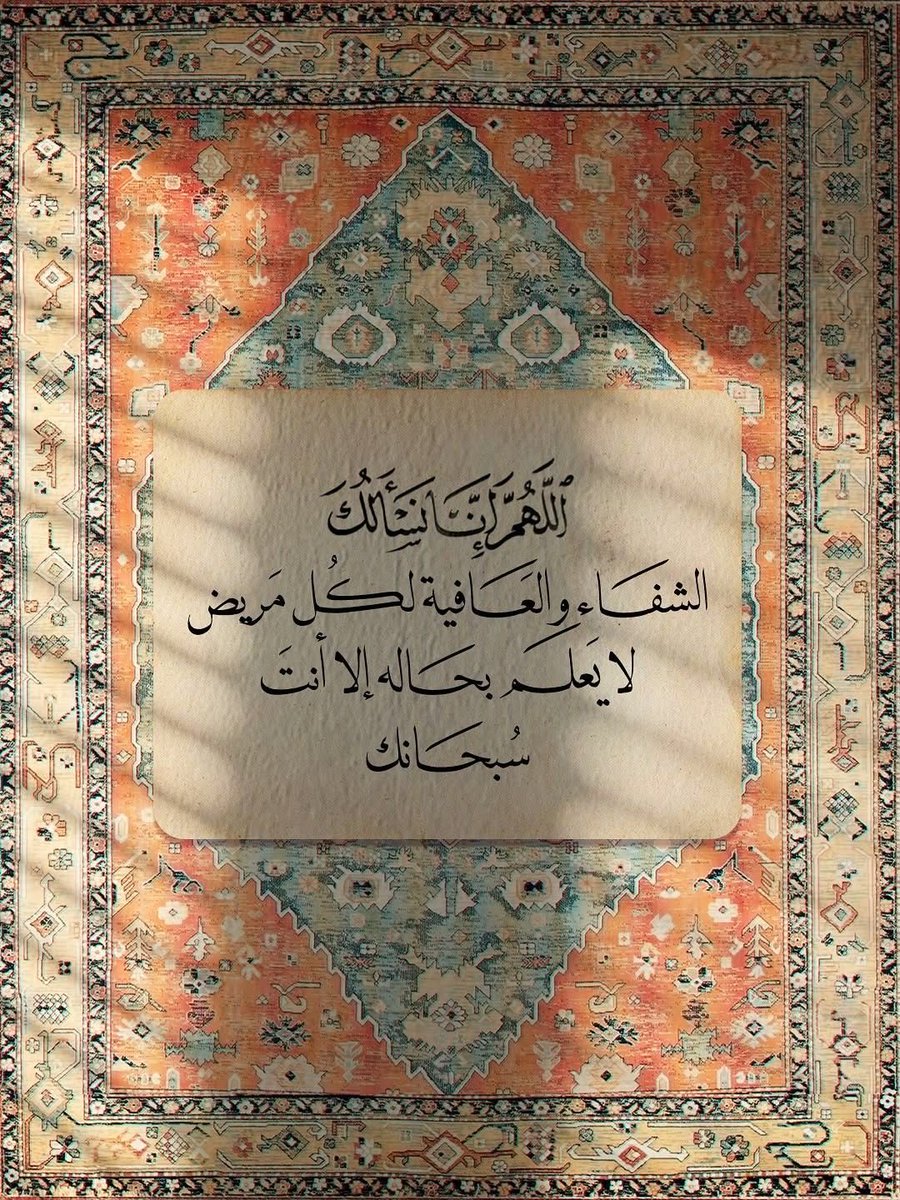 ٱللَّهُمَّ إِنَّا نَسْأَلُكَ
الشفَاء والعَافية لكُل مَريض
لا يَعلَم بحَاله إلا أنتَ
سُبحَانك